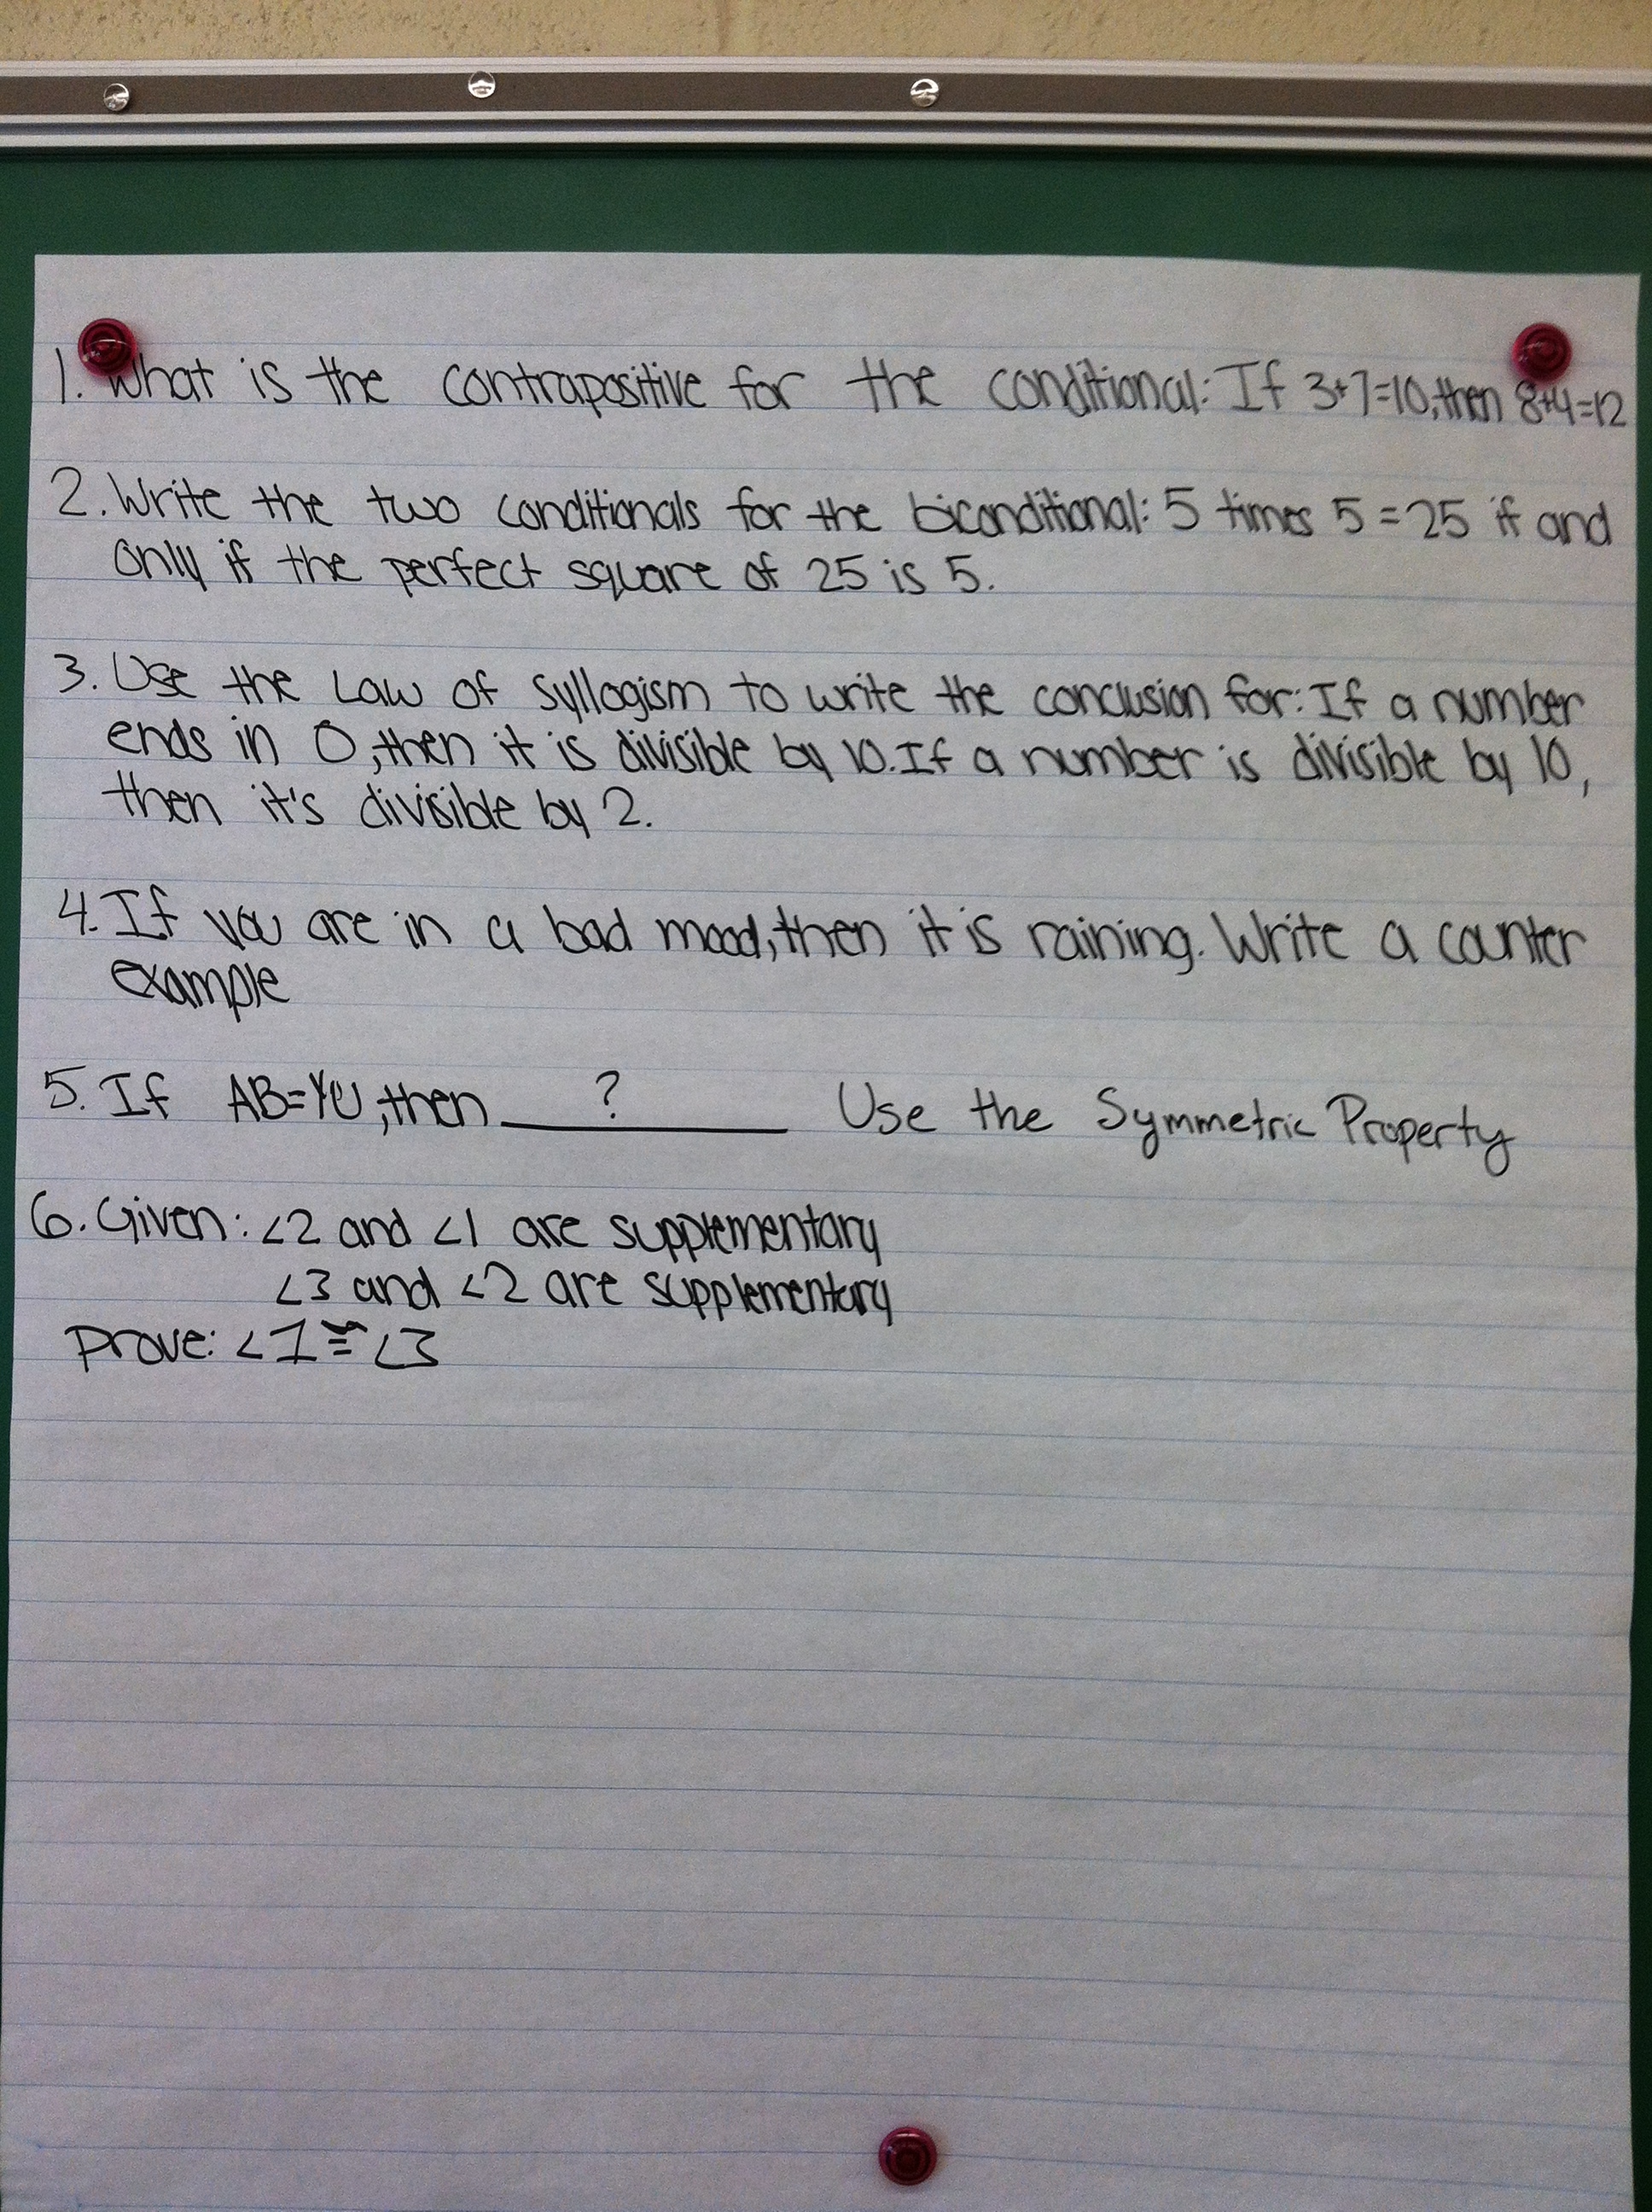 1. What is the contrapositive for the conditional: If 3+7=10, then 8+4=12
2. Write the two conditionals for the biconditional: 5 times 5 = 25 if and
only if the perfect square of 25 is 5.
3. Use the Law of Syllogism to write the conclusion for: If a number
ends in 0, then it is divisible by 10. If a number is divisible by 10,
then it's divisible by 2.
4. If you are in a bad mood, then it is raining. Write a counter
example
5. If AB=YU, then ___?___ Use the Symmetric Property
6. Given: <2 and <1 are supplementary
<3 and <2 are supplementary
Prove: <1 ≅ <3